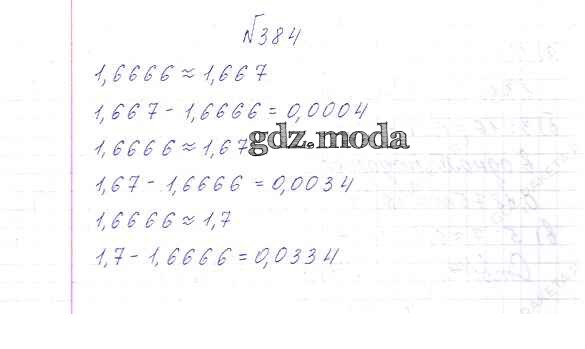 №384
1,6666 ≈ 1,667
1,667 - 1,6666 = 0,0004
1,6666 ≈ 1,67
gdz.moda
1,67 - 1,6666 = 0,0034
1,6666 ≈ 1,7
1,7 - 1,6666 = 0,0334